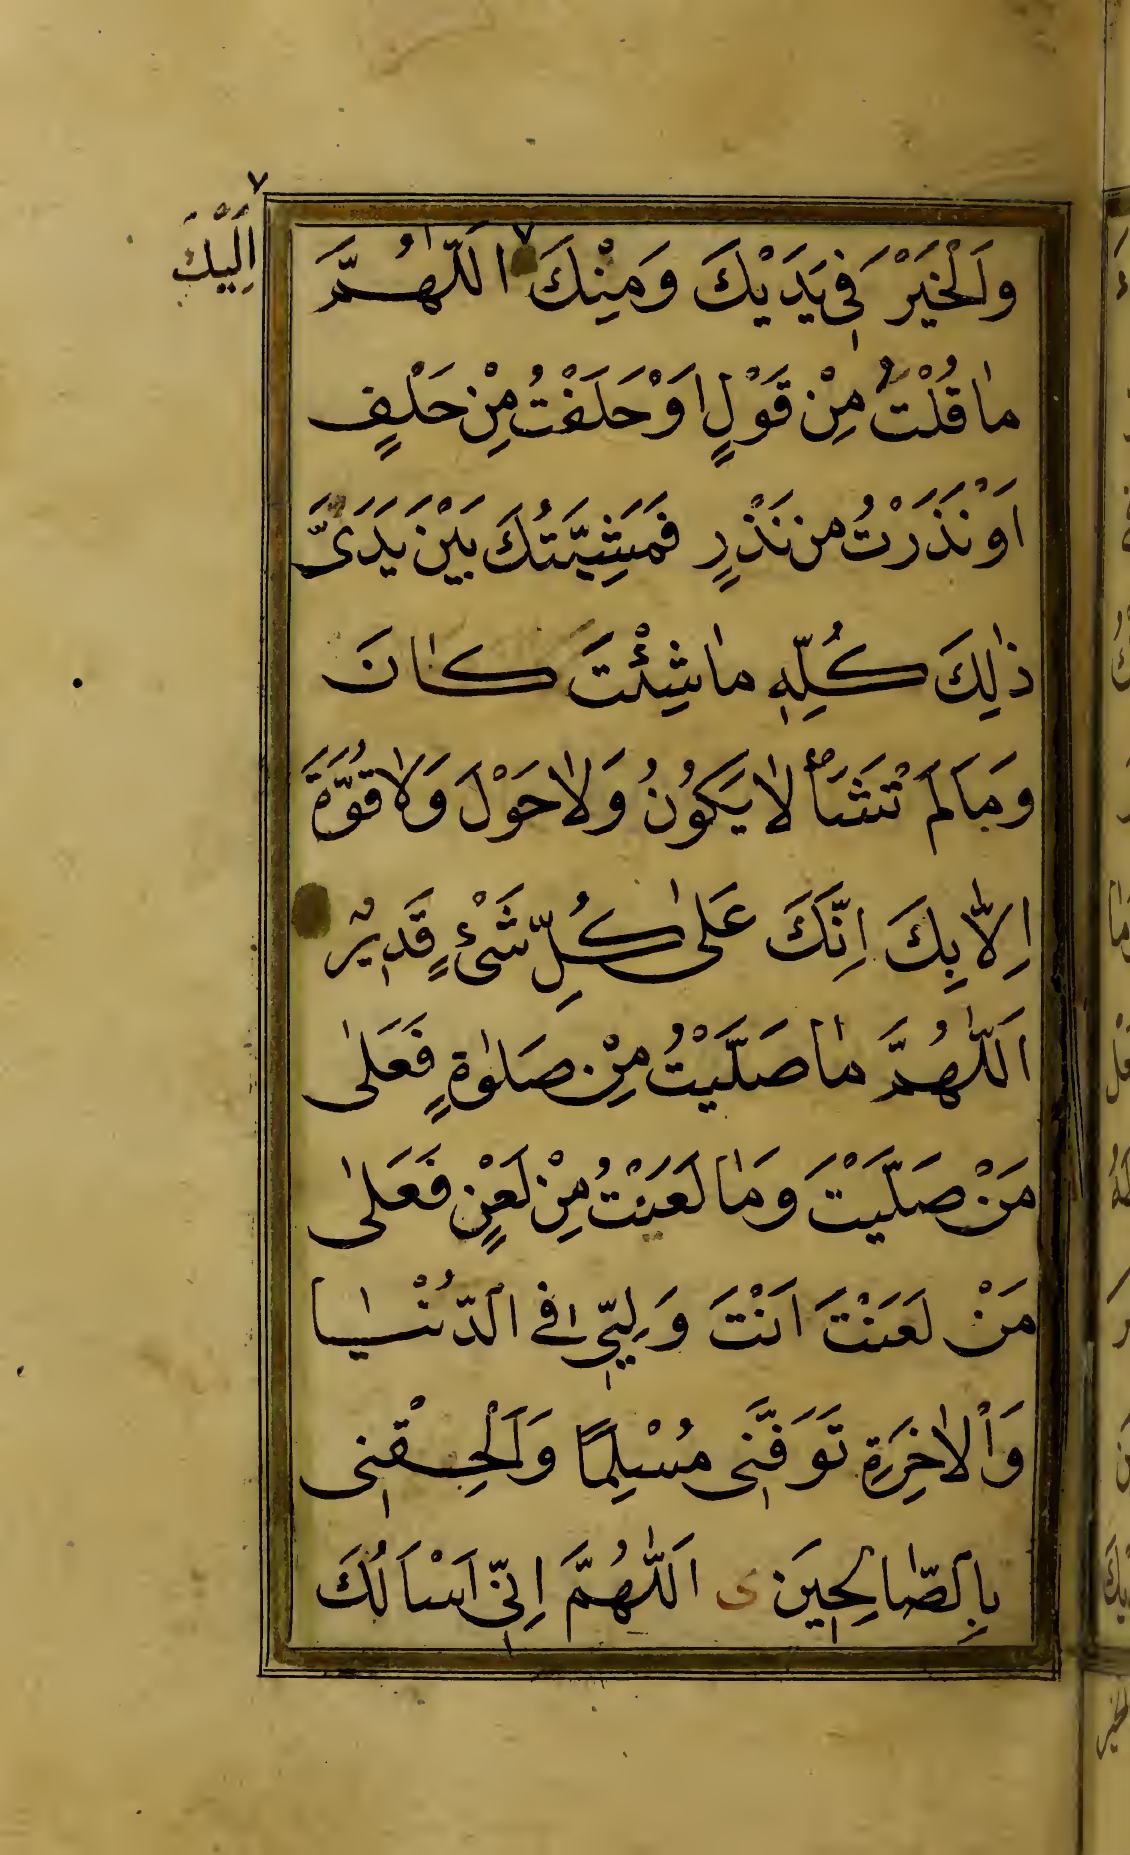 اِلَيْكَ
وَالْخَيْرَ فِي يَدَيْكَ وَمِنْكَ اللّٰهُمَّ
مٰا قُلْتُ مِنْ قَوْلٍ اَوْ حَلَفْتُ مِنْ حَلْفٍ
اَوْ نَذَرْتُ من نَذْرٍ فَمَشِيَّتُكَ بَيْنَ يَدَىَّ
ذٰلِكَ كُلِّهِ مٰا شِئْتَ كٰانَ
وَمَا لَمْ تَشَأْ لٰا يَكُونُ وَلٰا حَوْلَ وَلٰا قُوَّةَ
اِلّٰا بِكَ اِنَّكَ عَلىٰ كُلِّ شَىْءٍ قَدِيْرٌ
اَللّٰهُمَّ مٰا صَلَّيْتُ مِنْ صَلٰوةٍ فَعَلىٰ
مَنْ صَلَّيْتَ وَمٰا لَعَنْتُ مِنْ لَعْنٍ فَعَلىٰ
مَنْ لَعَنْتَ اَنْتَ وَلِيِّى فى الدُّنْيٰا
وَالْاٰخِرَةِ تَوَفَّنِى مُسْلِمًا وَاَلْحِقْنِى
بِالصّٰالِحِينَ ى اَللّٰهُمَّ اِنِّى اَسْاَلُكَ